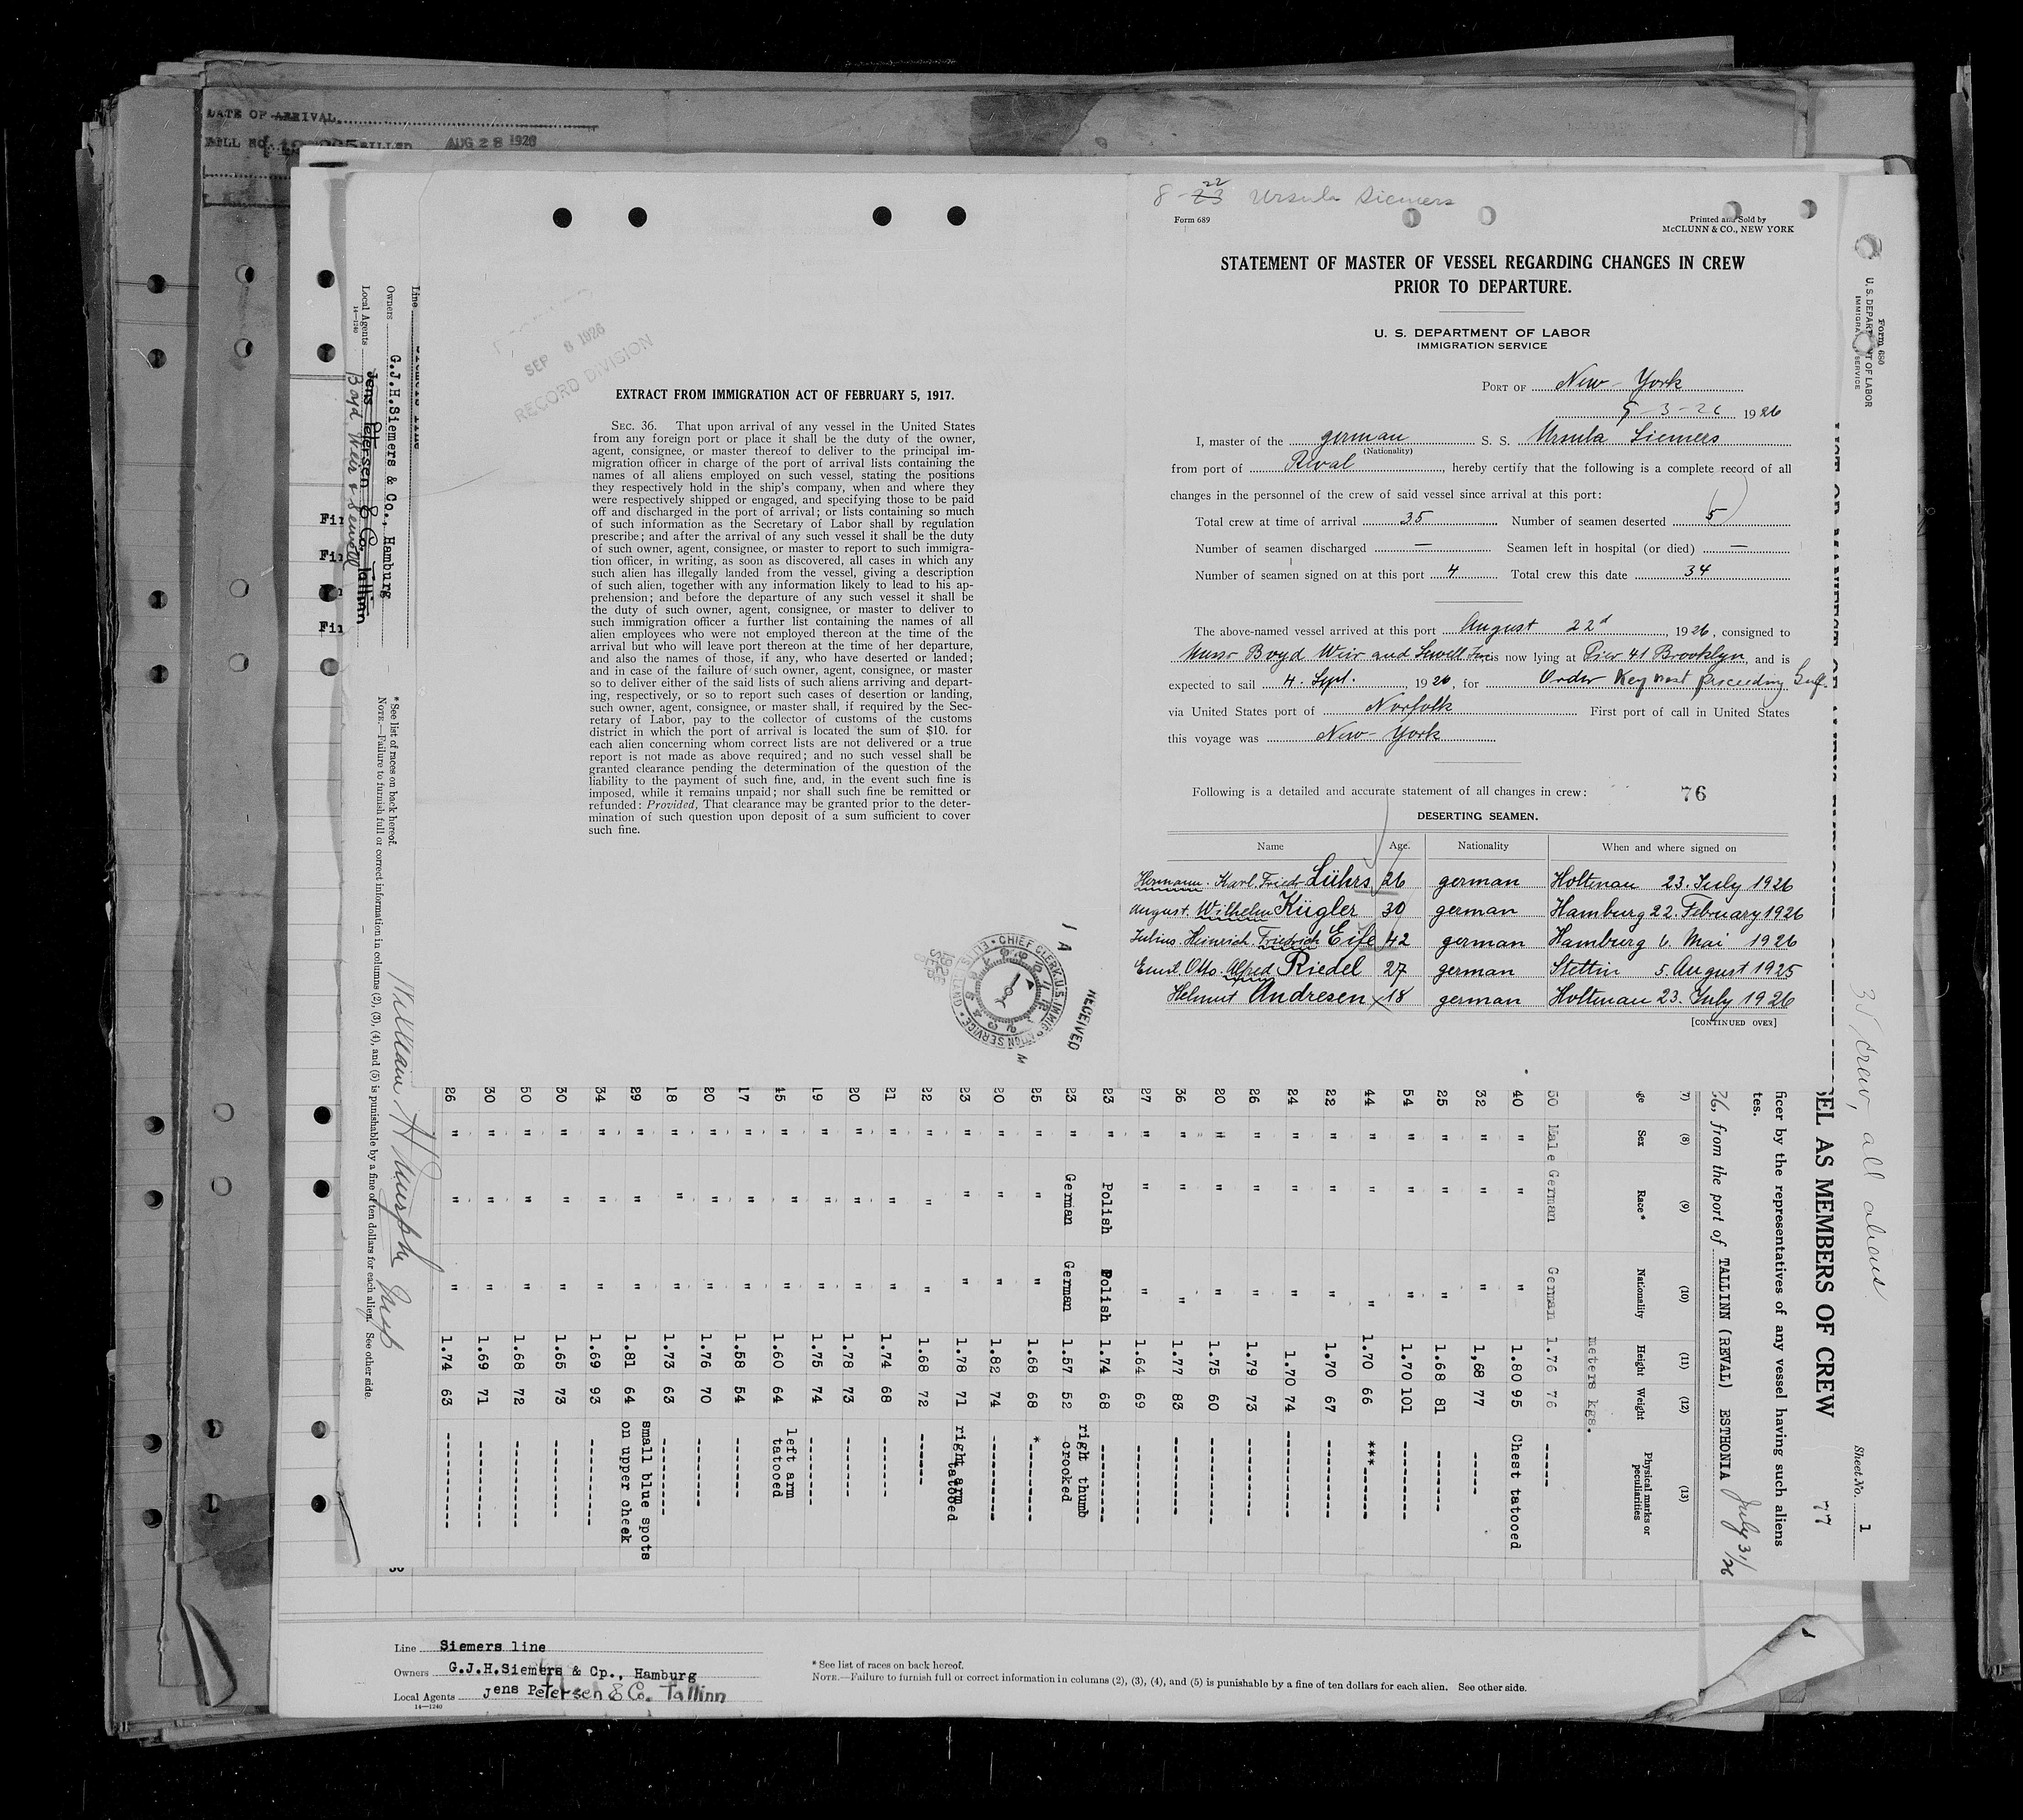 DATE OF ARRIVAL
AUG 28 1926
SEP 8 1926
RECORD DIVISION
EXTRACT FROM IMMIGRATION ACT OF FEBRUARY 5, 1917.
SEC. 36. That upon arrival of any vessel in the United States
from any foreign port or place it shall be the duty of the owner,
agent, consignee, or master thereof to deliver to the principal im-
migration officer in charge of the port of arrival lists containing the
names of all aliens employed on such vessel, stating the positions
they respectively hold in the ship's company, when and where they
were respectively shipped or engaged, and specifying those to be paid
off and discharged in the port of arrival; or lists containing so much
of such information as the Secretary of Labor shall by regulation
prescribe; and after the arrival of any such vessel it shall be the duty
of such owner, agent, consignee, or master to report to such immigra-
tion officer, in writing, as soon as discovered, all cases in which any
such alien has illegally landed from the vessel, giving a description
of such alien, together with any information likely to lead to his ap-
prehension; and before the departure of any such vessel it shall be
the duty of such owner, agent, consignee, or master to deliver to
such immigration officer a further list containing the names of all
alien employees who were not employed thereon at the time of the
arrival but who will leave port thereon at the time of her departure,
and also the names of those, if any, who have deserted or landed;
and in case of the failure of such owner, agent, consignee, or master
so to deliver either of the said lists of such aliens arriving and depart-
ing, respectively, or so to report such cases of desertion or landing,
such owner, agent, consignee, or master shall, if required by the Sec-
retary of Labor, pay to the collector of customs of the customs
district in which the port of arrival is located the sum of $10. for
each alien concerning whom correct lists are not delivered or a true
report is not made as above required; and no such vessel shall be
granted clearance pending the determination of the question of the
liability to the payment of such fine, and, in the event such fine is
imposed, while it remains unpaid; nor shall such fine be remitted or
refunded: Provided, That clearance may be granted prior to the deter-
mination of such question upon deposit of a sum sufficient to cover
such fine.
8-22 Ursula Siemers
Form 689
Printed and Sold by
McCLUNN & CO., NEW YORK
STATEMENT OF MASTER OF VESSEL REGARDING CHANGES IN CREW
PRIOR TO DEPARTURE.
U. S. DEPARTMENT OF LABOR
IMMIGRATION SERVICE
PORT OF New-York
9-3-26 1926
I, master of the german S. S. Ursula Siemers
(Nationality)
from port of Reval, hereby certify that the following is a complete record of all
changes in the personnel of the crew of said vessel since arrival at this port:
Total crew at time of arrival 35 Number of seamen deserted 5
Number of seamen discharged — Seamen left in hospital (or died) —
Number of seamen signed on at this port 4 Total crew this date 34
The above-named vessel arrived at this port August 22d, 1926, consigned to
Messr Boyd Weir and Sewell Inc is now lying at Pier 41 Brooklyn, and is
expected to sail 4. Sept. 1926, for Order Key west proceeding Gulf.
via United States port of Norfolk First port of call in United States
this voyage was New-York
Following is a detailed and accurate statement of all changes in crew: 76
DESERTING SEAMEN.
Name Age. Nationality When and where signed on
Hermann. Karl. Fried. Lührs 26 german Holtenau 23. July 1926
August. Wilhelm Kügler 30 german Hamburg 22. February 1926
Julius. Heinrich. Friedrich Eife 42 german Hamburg 6. Mai 1926
Emil. Otto. Alfred Riedel 27 german Stettin 5. August 1925
Helmut Andresen 18 german Holtenau 23. July 1926
[CONTINUED OVER]
CHIEF CLERK U.S. IMMIGRATION SERVICE ELLIS ISLAND
RECEIVED
Form 680
U. S. DEPARTMENT OF LABOR
IMMIGRATION SERVICE
35 crew, all aliens
Sheet No. 1
77
SEL AS MEMBERS OF CREW
ficer by the representatives of any vessel having such aliens
tes.
26, from the port of TALLINN (REVAL) ESTHONIA July 31/26
(7) (8) (9) (10) (11) (12) (13)
ge Sex Race* Nationality Height Weight Physical marks or peculiarities
meters kgs.
50 Male German German 1.76 76 -----
40 " " " 1.80 95 Chest tatooed
32 " " " 1,68 77 -----
25 " " " 1.68 81 --------
54 " " " 1.70 101 --------
44 " " " 1.70 66 ***-----
22 " " " 1.70 67 --------
24 " " " 1.70 74 --------
26 " " " 1.79 73 --------
20 " " " 1.75 60 --------
36 " " " 1.77 83 --------
27 " " " 1.64 69 --------
23 " Polish Polish 1.74 68 --------
23 " German German 1.57 52 right thumb crooked
25 " " " 1.68 68 *--------
20 " " " 1.82 74 --------
23 " " " 1.78 71 right arm tatooed
22 " " " 1.68 72 -----
21 " " " 1.74 68 --------
20 " " " 1.78 73 --------
19 " " " 1.75 74 --------
45 " " " 1.60 64 left arm tatooed
17 " " " 1.58 54 --------
20 " " " 1.76 70 --------
18 " " " 1.73 63 --------
29 " " " 1.81 64 small blue spots on upper cheek
34 " " " 1.69 93 --------
30 " " " 1.65 73 --------
50 " " " 1.68 72 --------
30 " " " 1.69 71 --------
26 " " " 1.74 63 --------
Line
Owners G.J.H.Siemers & Co., Hamburg
Local Agents Jens Petersen & Co. Tallinn
Boyd, Weir & Sewell
14—1240
* See list of races on back hereof.
NOTE.—Failure to furnish full or correct information in columns (2), (3), (4), and (5) is punishable by a fine of ten dollars for each alien. See other side.
William H Murphy Insp
Line Siemers line
Owners G.J.H.Siemers & Cp., Hamburg
Local Agents Jens Petersen & Co. Tallinn
14—1240
* See list of races on back hereof.
NOTE.—Failure to furnish full or correct information in columns (2), (3), (4), and (5) is punishable by a fine of ten dollars for each alien. See other side.